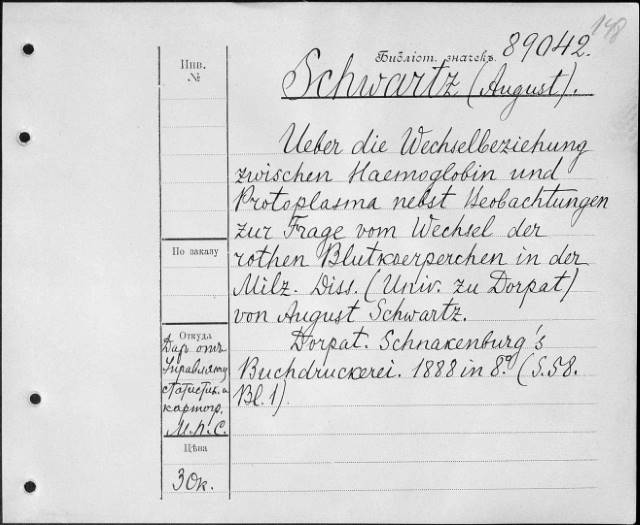 148
Библіот. значекъ. 89042.
Schwartz (August).
Инв.
№
Ueber die Wechselbeziehung
zwischen Haemoglobin und
Protoplasma nebst Beobachtungen
zur Frage vom Wechsel der
rothen Blutkoerperchen in der
Milz. Diss. (Univ. zu Dorpat)
von August Schwartz.
Dorpat. Schnakenburg's
Buchdruckerei. 1888 in 8° (S. 58.
Bl. 1).
По заказу
Откуда
Даръ отъ
Управляющ.
статистич. и
картогр.
М.П.С.
Цѣна
30к.